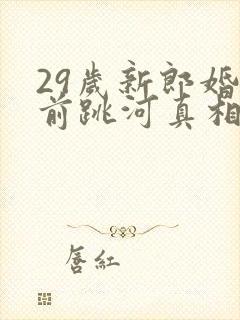 29歲新郎婚
前跳河真相
唇紅